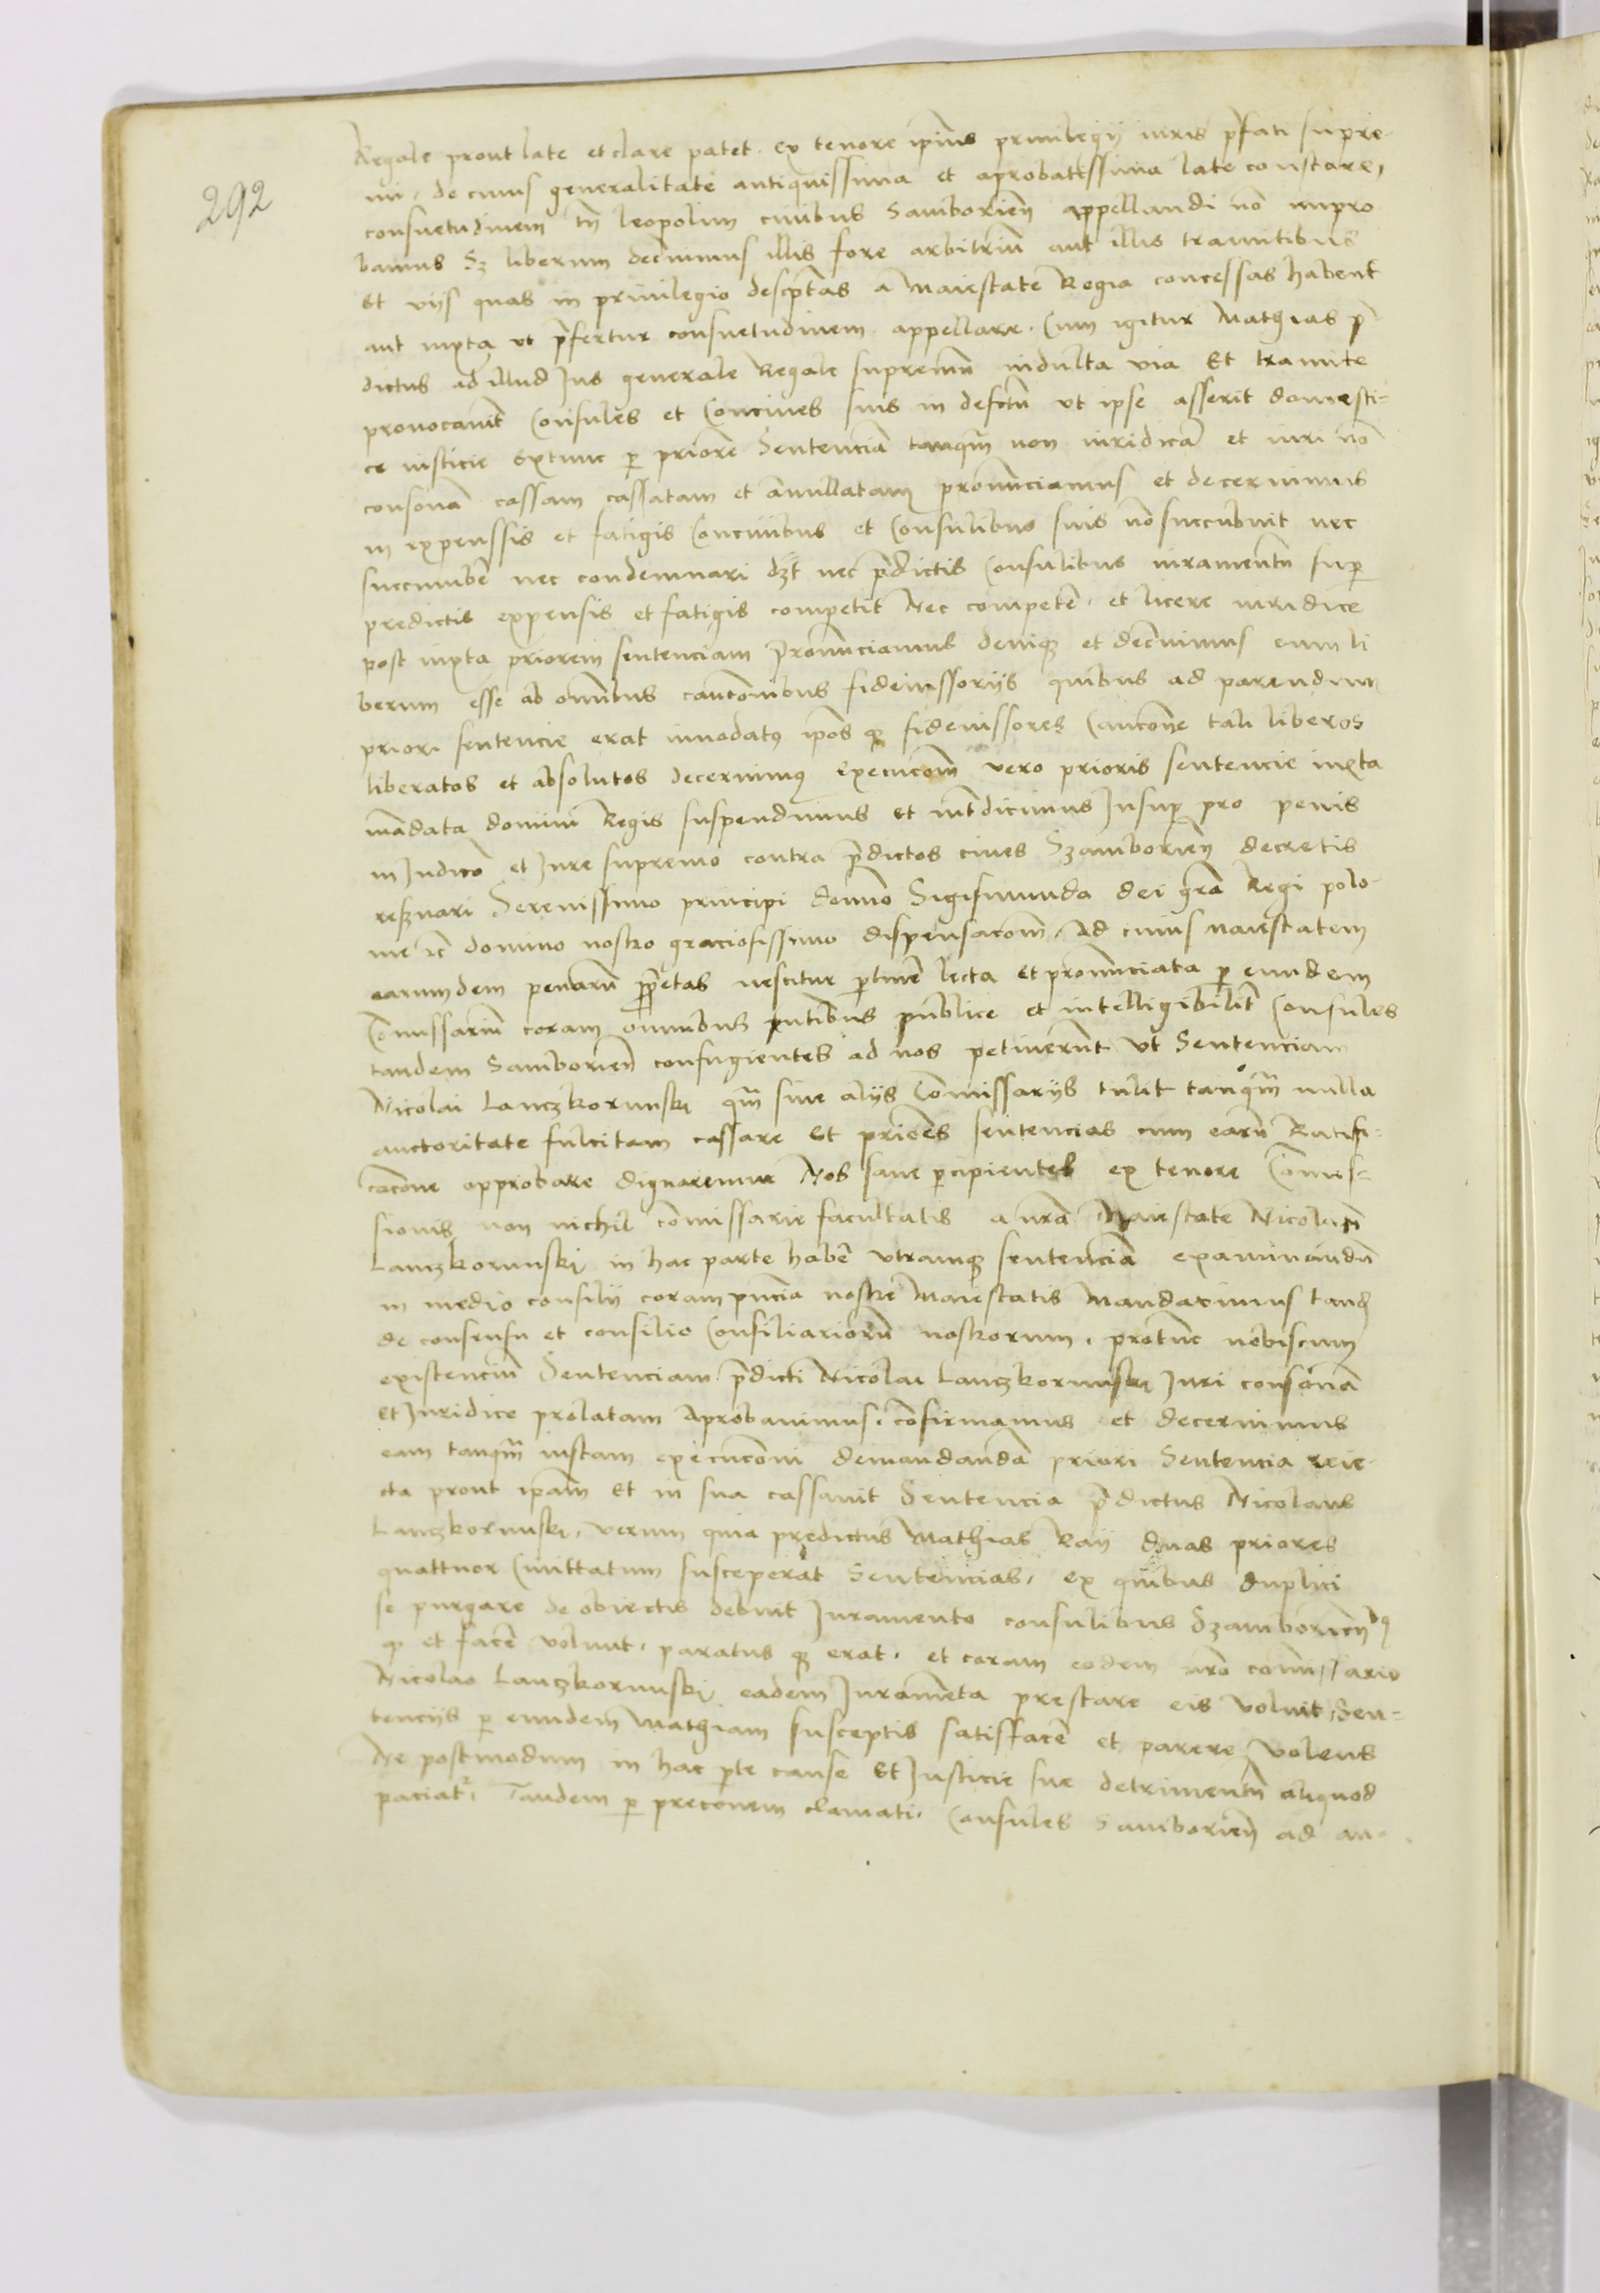 292
Regale prout late et clare patet ex tenore ipīus priuilegij iuris p̄fati supre-
mi, de cuius generalitate antiquissima et aprobatissima late constare,
consuetudinem tñ leopolim ciuibus Samborieñ appellandi nō impro
bamus Sz liberum decnimus illis fore arbitriū aut illis tramitibus
Et vijs quas in priuilegio descptas a Maiestate Regia concessas habent
aut iuxta vt p̄fertur consuetudinem appellare. Cum igitur Mathias p̄
dictus ad illud Jus generale Regale supremū indulta via Et tramite
prouocauit Consules et Conciues suis in defctū vt ipse asserit domesti-
ce iusticie Extunc p priorē Sentenciā tanqm̄ non iuridicā et iuri nō
consonā cassam cassatam et annullatam pronunciamus et decernimus
in expenssis et fatigis Conciuibus et Consulibus suis nō succubuit nec
succumbē nec condemnari dzt nec p̄dictis Consulibus iuramentū sup
predictis expensis et fatigis competit Nec competē, et licere iuridice
post iuxta priorem sentenciam Pronunciamus deniqz et decnimus eum li
berum esse ab omibus cautōnibus fideiussorijs quibus ad parendum
priori sentencie erat inuodatus ipōs qz fideiussores Cauciōne tali liberos
liberatos et absolutos decernimus Execucōm vero prioris sentencie iuxta
mādata domini Regis suspendimus Et intdicimus Jnsup pro penis
in Judicio et Jure supremo contra p̄dictos ciues Szamborieñ decretis
resuari Serenissimo principi domno Sigismunda dei grā Regi polo-
nie ꝛc domino nostro graciosissimo dispensacōm, Ad cuius Maiestatem
earumdem penarū pp̄etas nescitur ptinē lecta Et pronunciata p eundem
Cōmissariū coram omnibus pntibus publice et intelligibilit Consules
tandem Samborieñ confugientes ad nos petiuerunt vt Sentenciam
Nicolai Lanczkorunski qm̄ siue alijs Comissarijs tulit tanqm̄ nulla
auctoritate fulcitam cassare Et priōes sentencias cum earū Ratifi-
cacōne approbare dignaremur Nos sane pcipientes ex tenore Comis-
sionis non nichil comissarie facultatis a nrā Maiestate Nicolaū
Lanczkorunski in hac parte habē vtramqz sentenciā examinandū
in medio consilij coram pnciā nostre Maiestatis Mandauimus tand
de consensu et consilio Consiliariorū nostrorum, protunc nobiscum
existenciū Sentenciam p̄dicti Nicolai Lanczkorunski Juri consonā
Et Juridice prolatam Aprobauimus, confirmamus et decernimus
eam tanqm̄ iustam execucōni demandandā priori Sentencia reie-
cta prout ipām Et in sua cassauit Sentencia p̄dictus Nicolaus
Lanczkorunski, verum quia predictus Mathias Raij duas priores
quattuor Ciuittatum susceperat Sentencias, ex quibus duplici
se purgare de obiectis debuit Juramento consulibus Szamborieñbus
qz et facē voluit, paratus qz erat, et coram eodem nrō commissario
Nicolao Lanczkorunski, eadem Juramēta prestare eis voluit, Sen-
tencijs p eundem Mathiam susceptis satisfacē et parere volens
Ne postmodum in hac pte cause Et Justicie sue detrimentū aliquod
paciatr, Tandem p preconem clamati, Consules Samborieñ ad